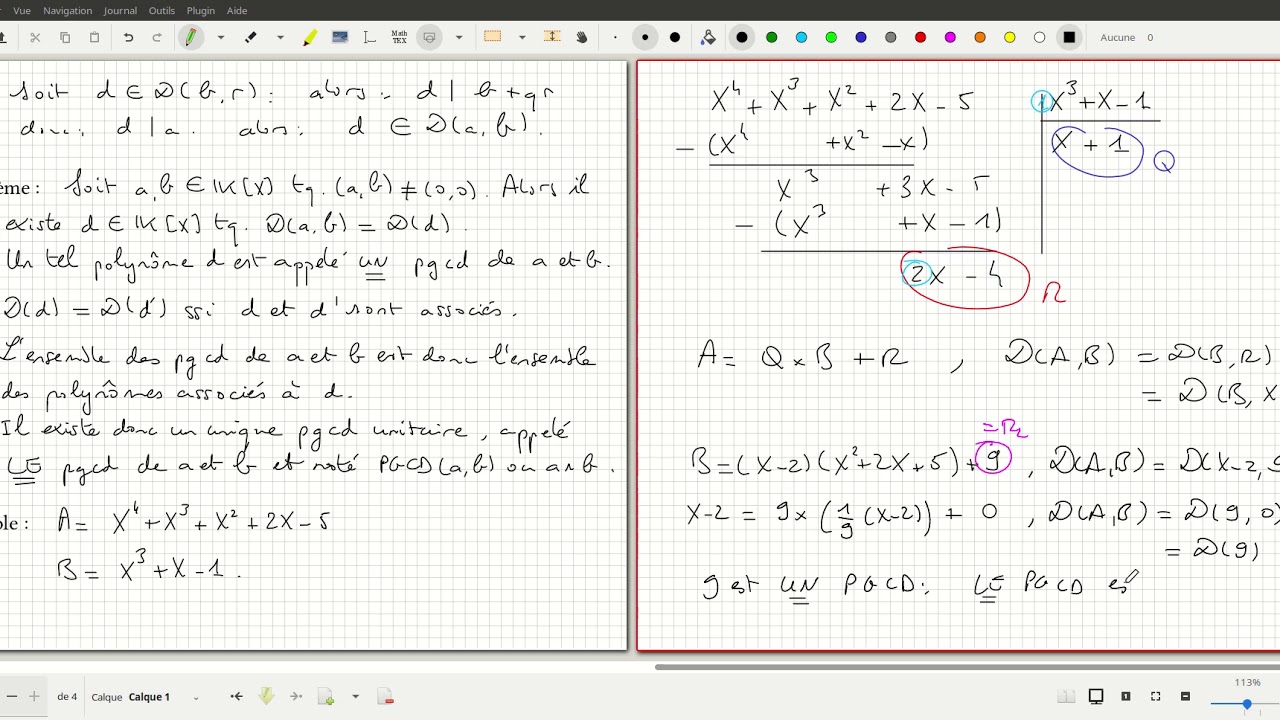 Vue Navigation Journal Outils Plugin Aide
Math TEX
Aucune 0
Soit d ∈ D(b,r) : alors : d | b+qr
donc : d | a. alors : d ∈ D(a,b).
ème : Soit a,b ∈ K[X] tq. (a,b) ≠ (0,0). Alors il
existe d ∈ K[X] tq. D(a,b) = D(d).
Un tel polynôme d est appelé UN pgcd de a et b.
D(d) = D(d') ssi d et d' sont associés.
L'ensemble des pgcd de a et b est donc l'ensemble
des polynômes associés à d.
Il existe donc un unique pgcd unitaire, appelé
LE pgcd de a et b et noté PGCD(a,b) ou a∧b.
ple : A = X⁴+X³+X²+2X-5
B = X³+X-1.
X⁴+X³+X²+2X-5 1X³+X-1
-(X⁴ +X²-X) X+1 Q
X³ +3X-5
-(X³ +X-1)
2X-4 R
A = Q×B+R , D(A,B) = D(B,R)
= D(B, X
=R₂
B=(X-2)(X²+2X+5)+9 , D(A,B) = D(X-2, 9
X-2 = 9×(1/9 (X-2)) + 0 , D(A,B) = D(9,0)
= D(9)
9 est UN PGCD; LE PGCD es
de 4 Calque Calque 1
113%